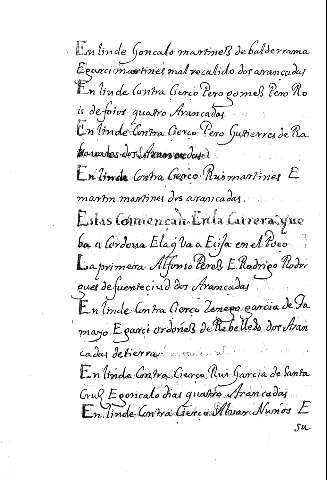 En linde Goncalo martines de balderrama
E garci martines mal recabido dos arancadas
En linde Contra Cierco Pero gomes Pero Ro
is de foios quatro Arancadas
En linde Contra Cierco Pero Gutierres de Ra
dos Arancadas
En linde Contra Cierco Rui martines E
martin martines dos arancadas
Estas Comiencan En la Carrera que
ba a Cordova E la q Va a Ecija en el Poco
La primera Alfonso Peres E Rodrigo Rodri
gues de fuentecind dos Arancadas
En linde Contra Cierco Domego garcia de Ta
mayo E garci ordones de Rebolledo dos Aran
cadas de tierra
En linde Contra Cierco Rui Garcia de Santa
Cruz E goncalo dias quatro Arancadas
En linde Contra Cierco Alvar Nunos E
su